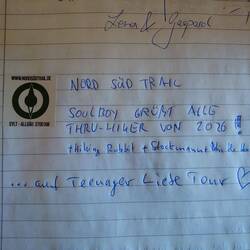 Lena & Gaspard
WWW.NORDSUEDTRAIL.DE
SYLT - ALLGÄU STUIBEN
NORD SÜD TRAIL
SOULBOY GRÜßT ALLE
THRU-HIKER VON 2026
+ Hiking Rabbit +
... auf Teenager Liese Tour